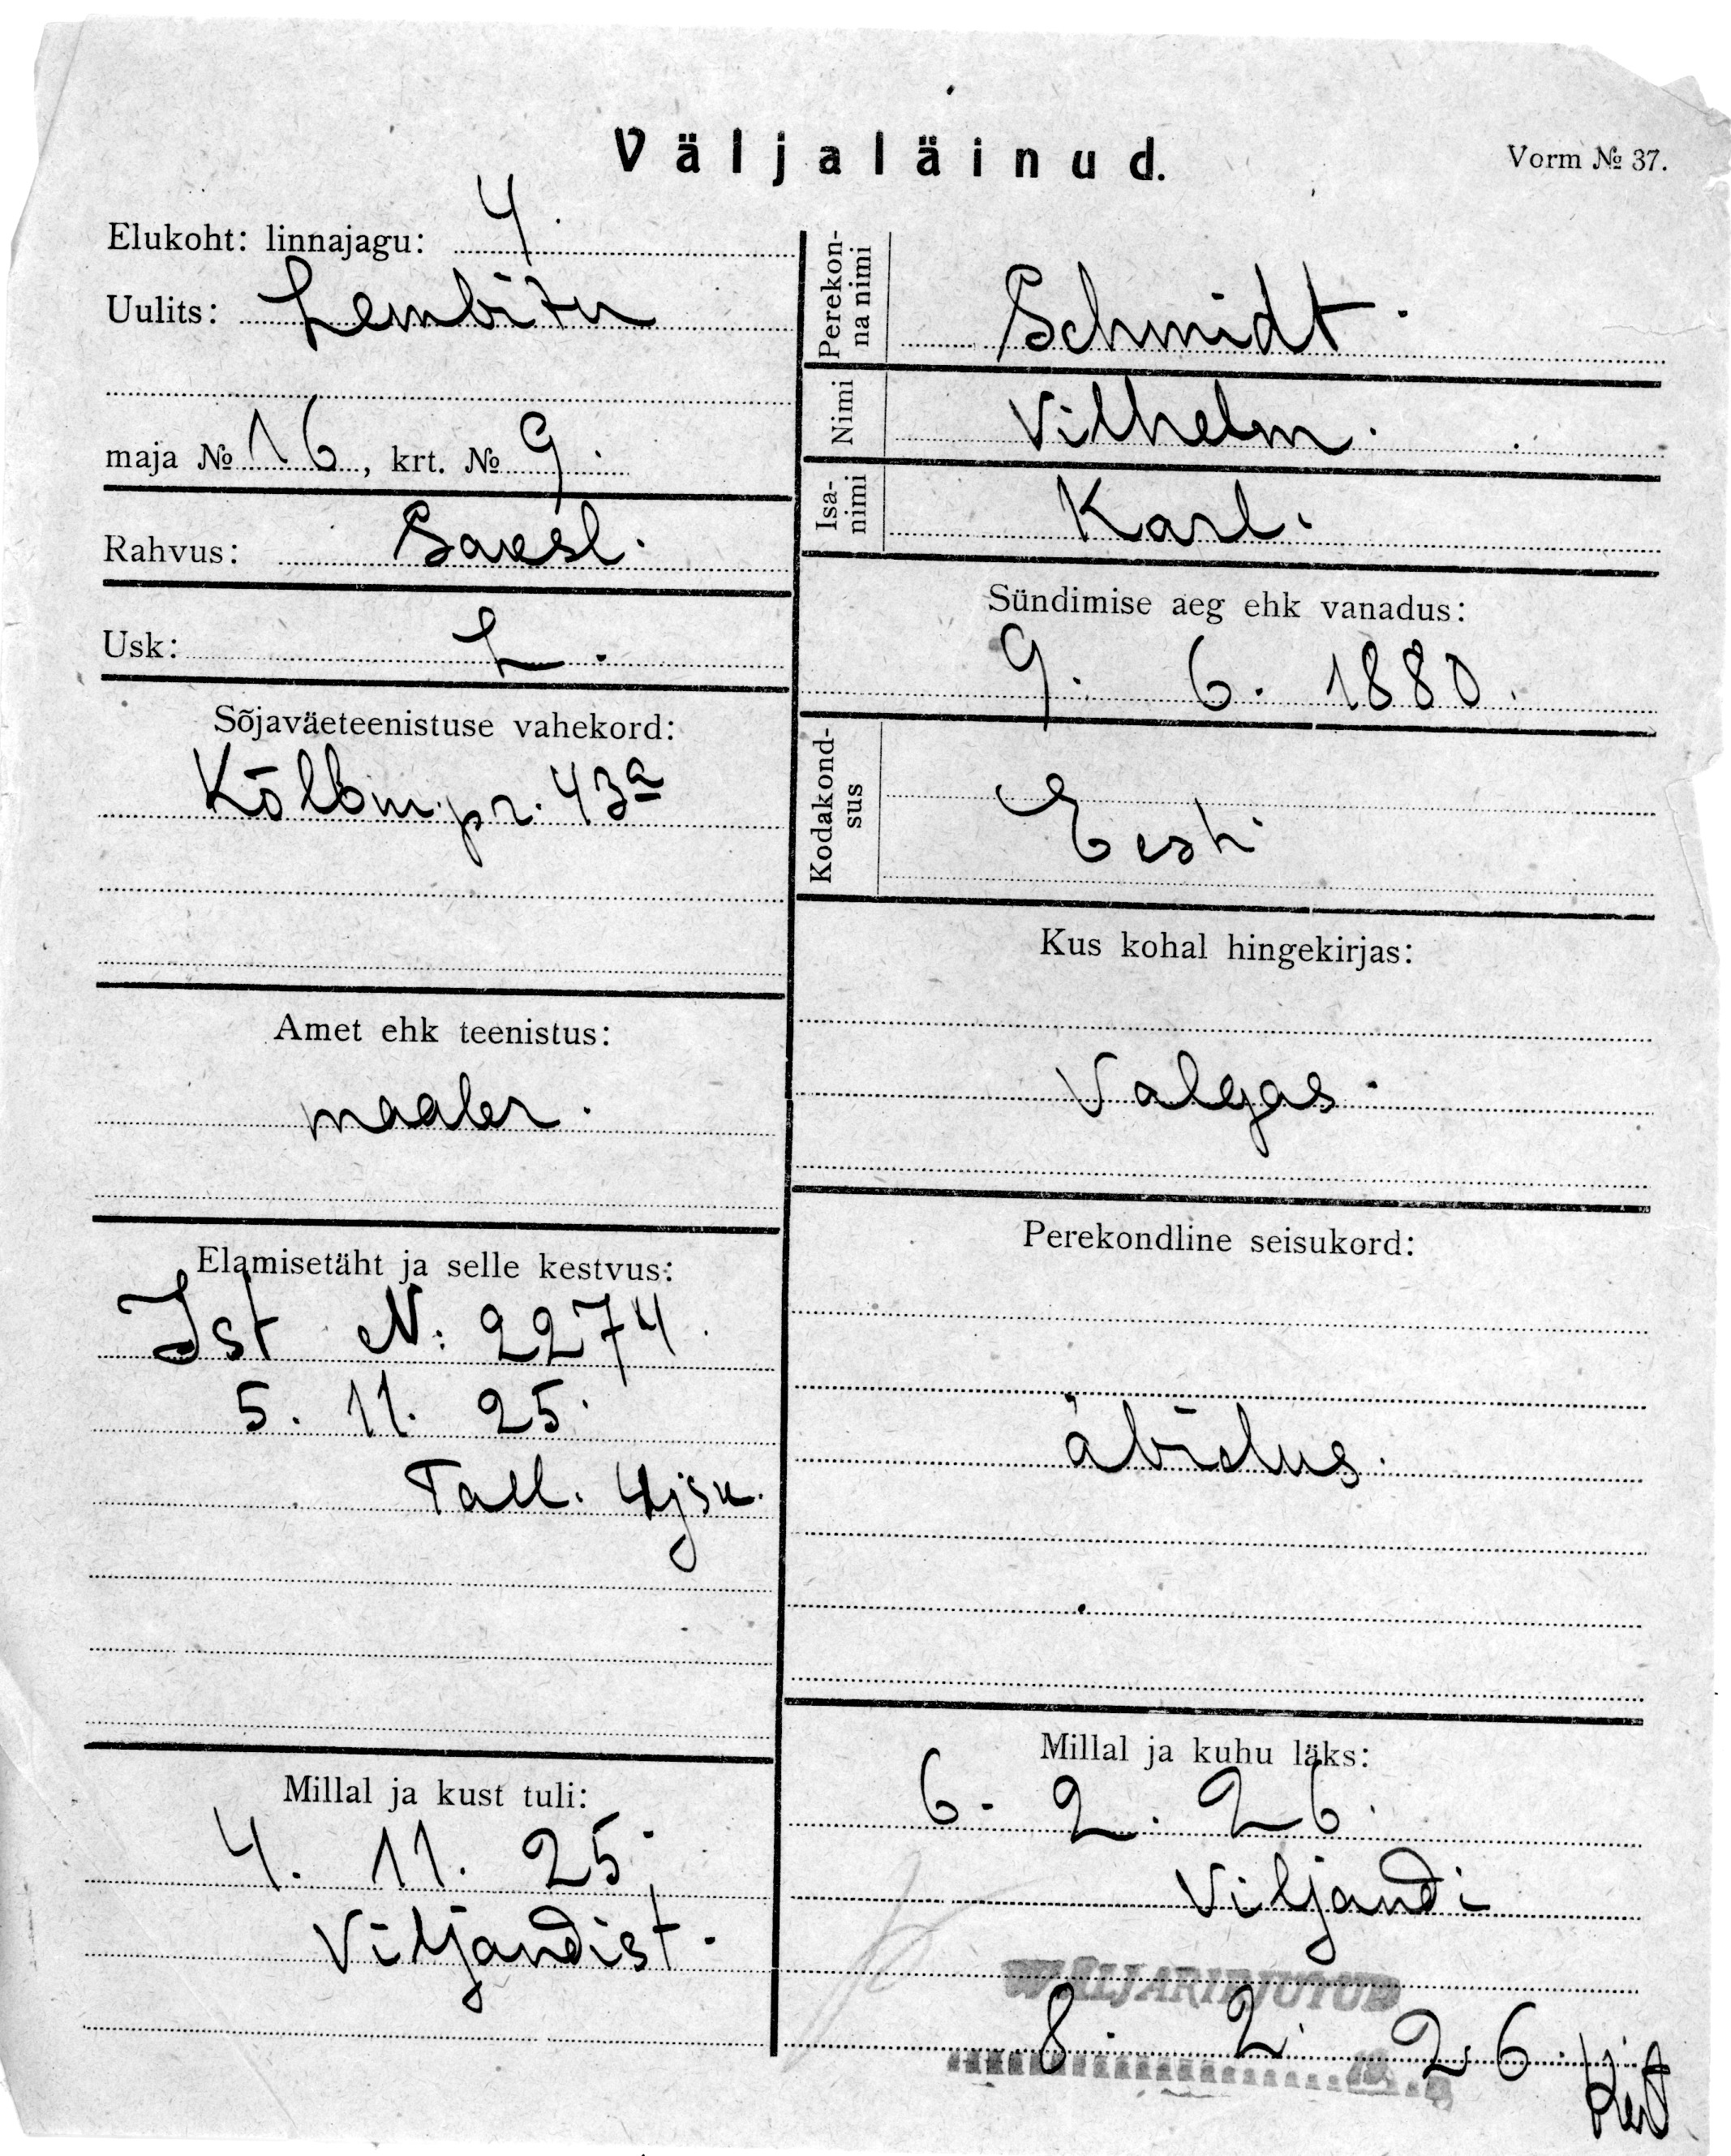 Väljaläinud.
Vorm № 37.
Elukoht: linnajagu: 4.
Uulits: Lembitu
maja № 16, krt. № 9.
Rahvus: Saksl.
Usk: L.
Sõjaväeteenistuse vahekord:
Kõlbm. pr. 43a
Amet ehk teenistus:
maaler.
Elamisetäht ja selle kestvus:
Ist N: 2274.
5. 11. 25.
Tall. 4 jsk.
Millal ja kust tuli:
4. 11. 25.
Viljandist.
Perekon-
na nimi
Schmidt.
Nimi
Vilhelm.
Isa-
nimi
Karl.
Sündimise aeg ehk vanadus:
9. 6. 1880.
Kodakond-
sus
Eesti
Kus kohal hingekirjas:
Valgas.
Perekondline seisukord:
äbielus.
Millal ja kuhu läks:
6. 2. 26.
Viljandi
WÄLJAKIRJUTUD
8. 2. 26.